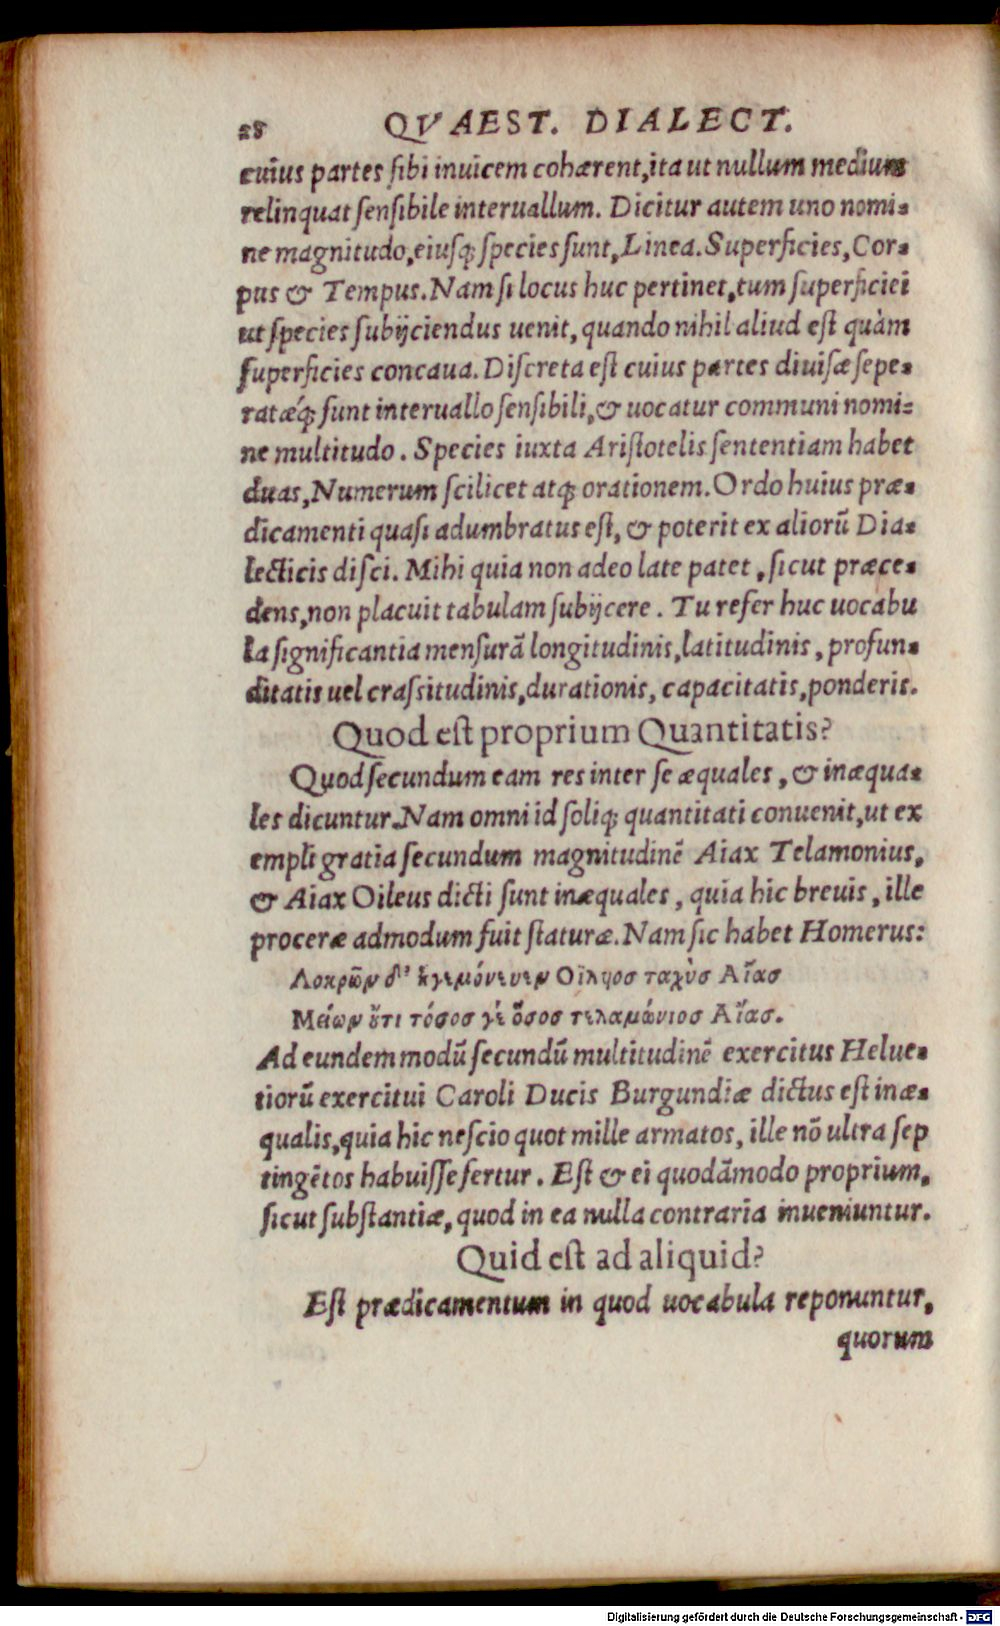 28 QVAEST. DIALECT.
cuius partes sibi inuicem cohærent, ita ut nullum medium
relinquat sensibile interuallum. Dicitur autem uno nomi-
ne magnitudo, eiusq; species sunt, Linea. Superficies, Cor-
pus & Tempus. Nam si locus huc pertinet, tum superficiei
ut species subijciendus uenit, quando nihil aliud est quàm
superficies concaua. Discreta est cuius partes diuisæ sepe-
ratæq́; sunt interuallo sensibili, & uocatur communi nomi-
ne multitudo. Species iuxta Aristotelis sententiam habet
duas, Numerum scilicet atq; orationem. Ordo huius præ-
dicamenti quasi adumbratus est, & poterit ex aliorũ Dia-
lecticis disci. Mihi quia non adeo late patet, sicut præce-
dens, non placuit tabulam subijcere. Tu refer huc uocabu
la significantia mensurã longitudinis, latitudinis, profun-
ditatis uel crassitudinis, durationis, capacitatis, ponderis.
Quod est proprium Quantitatis?
Quod secundum eam res inter se æquales, & inæqua-
les dicuntur. Nam omni id soliq; quantitati conuenit, ut ex
empli gratia secundum magnitudinẽ Aiax Telamonius,
& Aiax Oileus dicti sunt inæquales, quia hic breuis, ille
proceræ admodum fuit staturæ. Nam sic habet Homerus:
Λοκρῶν δ' ἡγεμόνευεν Οἴληοσ ταχὺσ Αἴασ
Μείων ὄτι τόσοσ γὲ ὅσοσ τελαμώνιοσ Αἴασ.
Ad eundem modũ secundũ multitudinẽ exercitus Helue-
tiorũ exercitui Caroli Ducis Burgundiæ dictus est inæ-
qualis, quia hic nescio quot mille armatos, ille nõ ultra sep
tingẽtos habuisse fertur. Est & ei quodãmodo proprium,
sicut substantiæ, quod in ea nulla contraria inueniuntur.
Quid est ad aliquid?
Est prædicamentum in quod uocabula reponuntur,
quorum
Digitalisierung gefördert durch die Deutsche Forschungsgemeinschaft - DFG